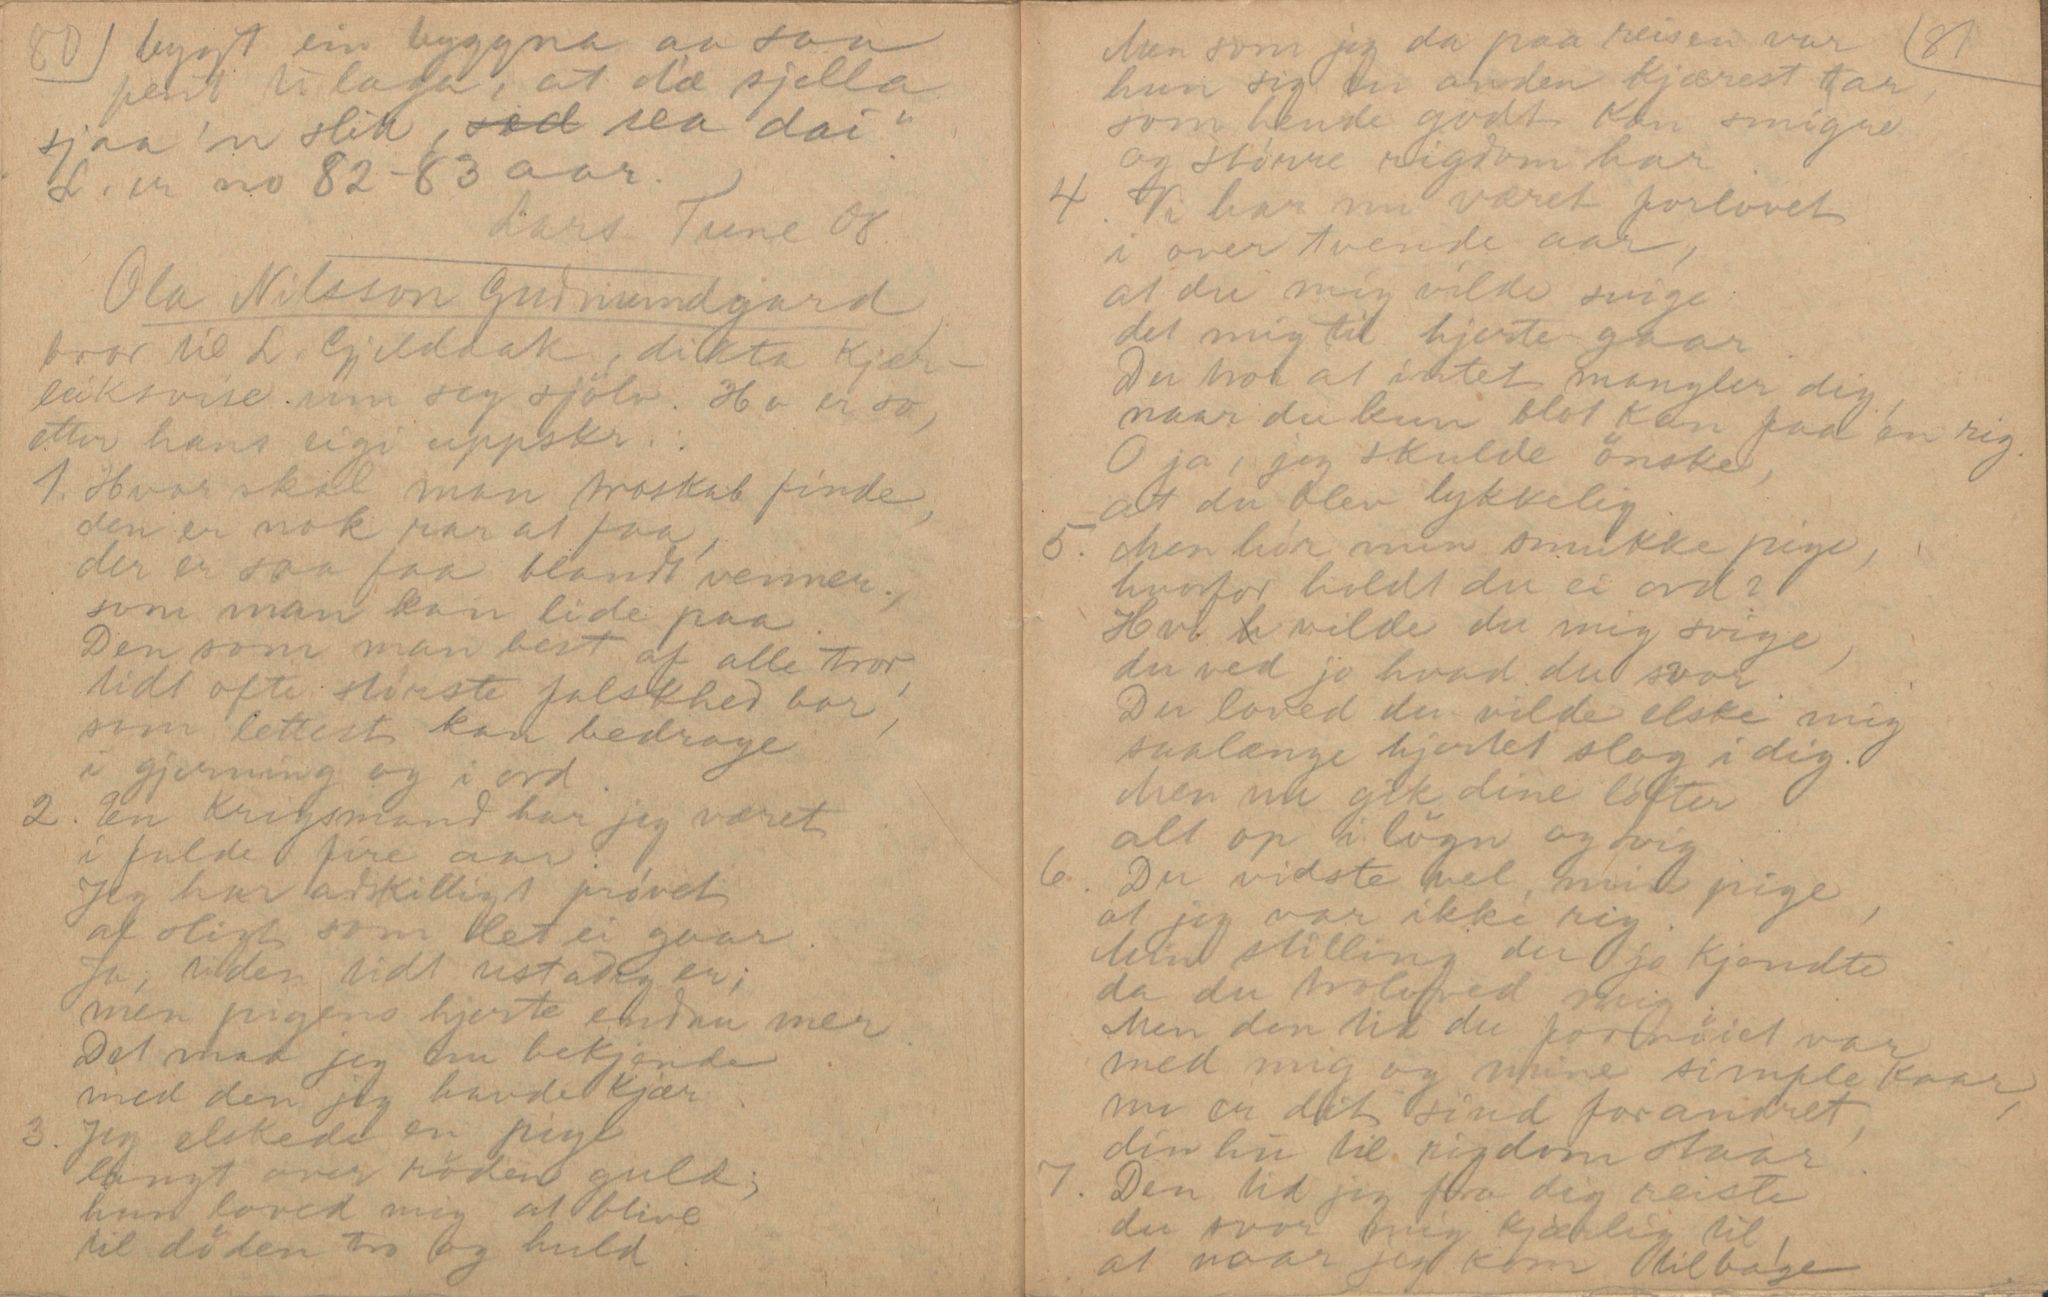 80) bygt ein byggna aa saa
pent tilaga, at dæ sjella
sjaa 'n slik, sea dai"
L. er no 82-83 aar.
Lars Tune 08.
Ola Nilsson Gudmundgard
bror til L. Gjeldaak, dikta kjær-
leiksvise um seg sjölv. Ho er so,
etter hans eigi uppskr.:
1. Hvor skal man troskab finde,
den er nok rar at faa,
der er saa faa blandt venner,
som man kan lide paa.
Den som man best af alle tror,
tidt ofte største falskhed bor,
som lettest kan bedrage
i gjerning og i ord.
2. En krigsmand har jeg været
i fulde fire aar.
Jeg har adskilligt prövet
af sligt som let ei gaar.
Ja, tiden tidt ustadig er;
men pigens hjerte endnu mer
Det maa jeg nu bekjende
med den jeg havde kjær.
3. Jeg elskede en pige
langt over röden guld;
hun loved mig at blive
til döden tro og huld.
81
Men som jeg da paa reisen var
hun sig en anden kjærest tar,
som hende godt kan smigre
og större rigdom har.
4. Vi har nu været forlovet
i over tvende aar,
at du mig vilde svige
det mig til hjerte gaar.
Du tror at intet mangler dig,
naar du kun blot kan faa en rig.
O ja, jeg skulde önske,
at du blev lykkelig.
5. Men hör min smukke pige,
hvorfor holdt du ei ord?
Hvi vilde du mig svige,
du ved jo hvad du svor.
Du loved du vilde elske mig
saalænge hjertet slog i dig.
Men nu gik dine löfter
alt op i lögn og svig
6. Du vidste vel, min pige,
at jeg var ikke rig.
Min stilling du jo kjendte
da du troloved mig.
Men den tid du fornöiet var
med mig og mine simple kaar,
nu er dit sind forandret,
din hu til rigdom staar.
7. Den tid jeg fra dig reiste
du svor mig kjærlig til,
at naar jeg kom tilbage